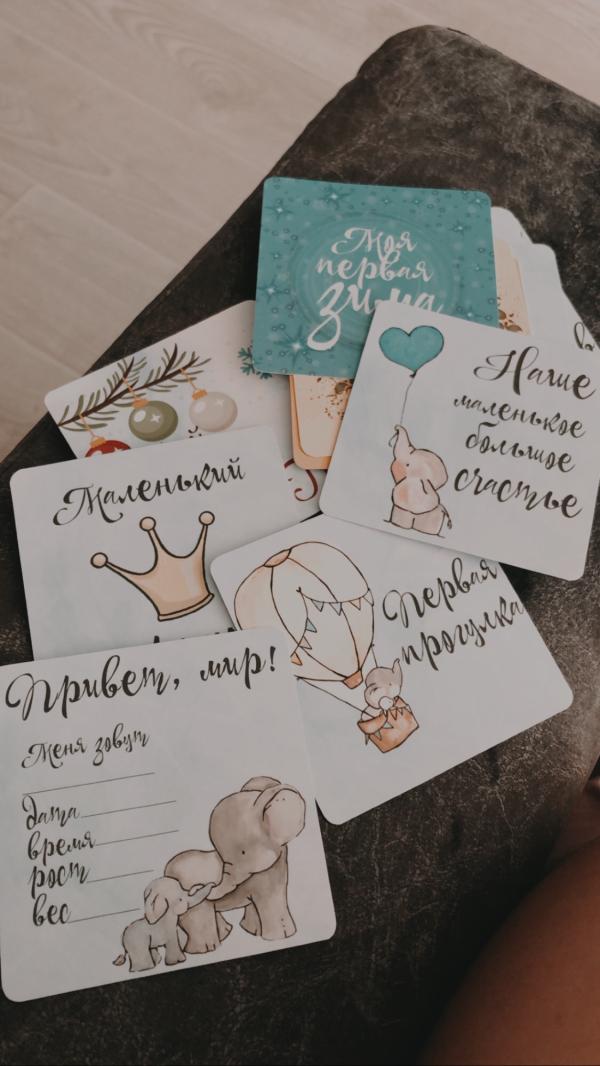 Моя
первая
зима
Наше
маленькое
большое
счастье
Маленький
Первая
прогулка
Привет, мир!
Меня зовут
дата
время
рост
вес